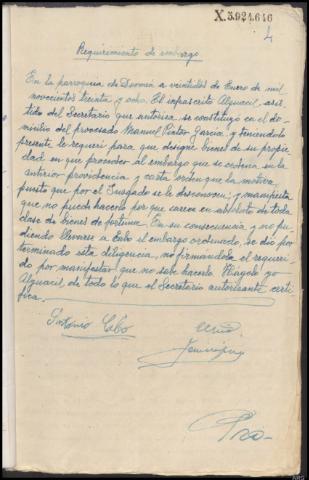 X.3.924.646
4
Requirimiento de embargo
En la parroquia de a veintidos de Enero de mil
novecientos treinta y ocho. El infrascrito Alguacil, asis-
tido del Secretario que autoriza se constituyó en el do-
micilio del procesado Manuel García y teniendole
presente le requerí para que designe bienes de su propie-
dad en que proceder al embargo que se ordena en la
anterior providencia y carta orden que la motiva,
puesto que por el Juzgado se le desconocen; y manifesta
que no puede hacerlo por que carece en absoluto de toda
clase de bienes de fortuna. En su consecuencia y no pu-
diendo llevarse a cabo el embargo ordenado, se dió por
terminado esta diligencia, no firmandola el requeri-
do por manifestar que no sabe hacerlo. Hágolo yo
Alguacil, de todo lo que el Secretario autorizante certi-
fica.
Antonio Cabo